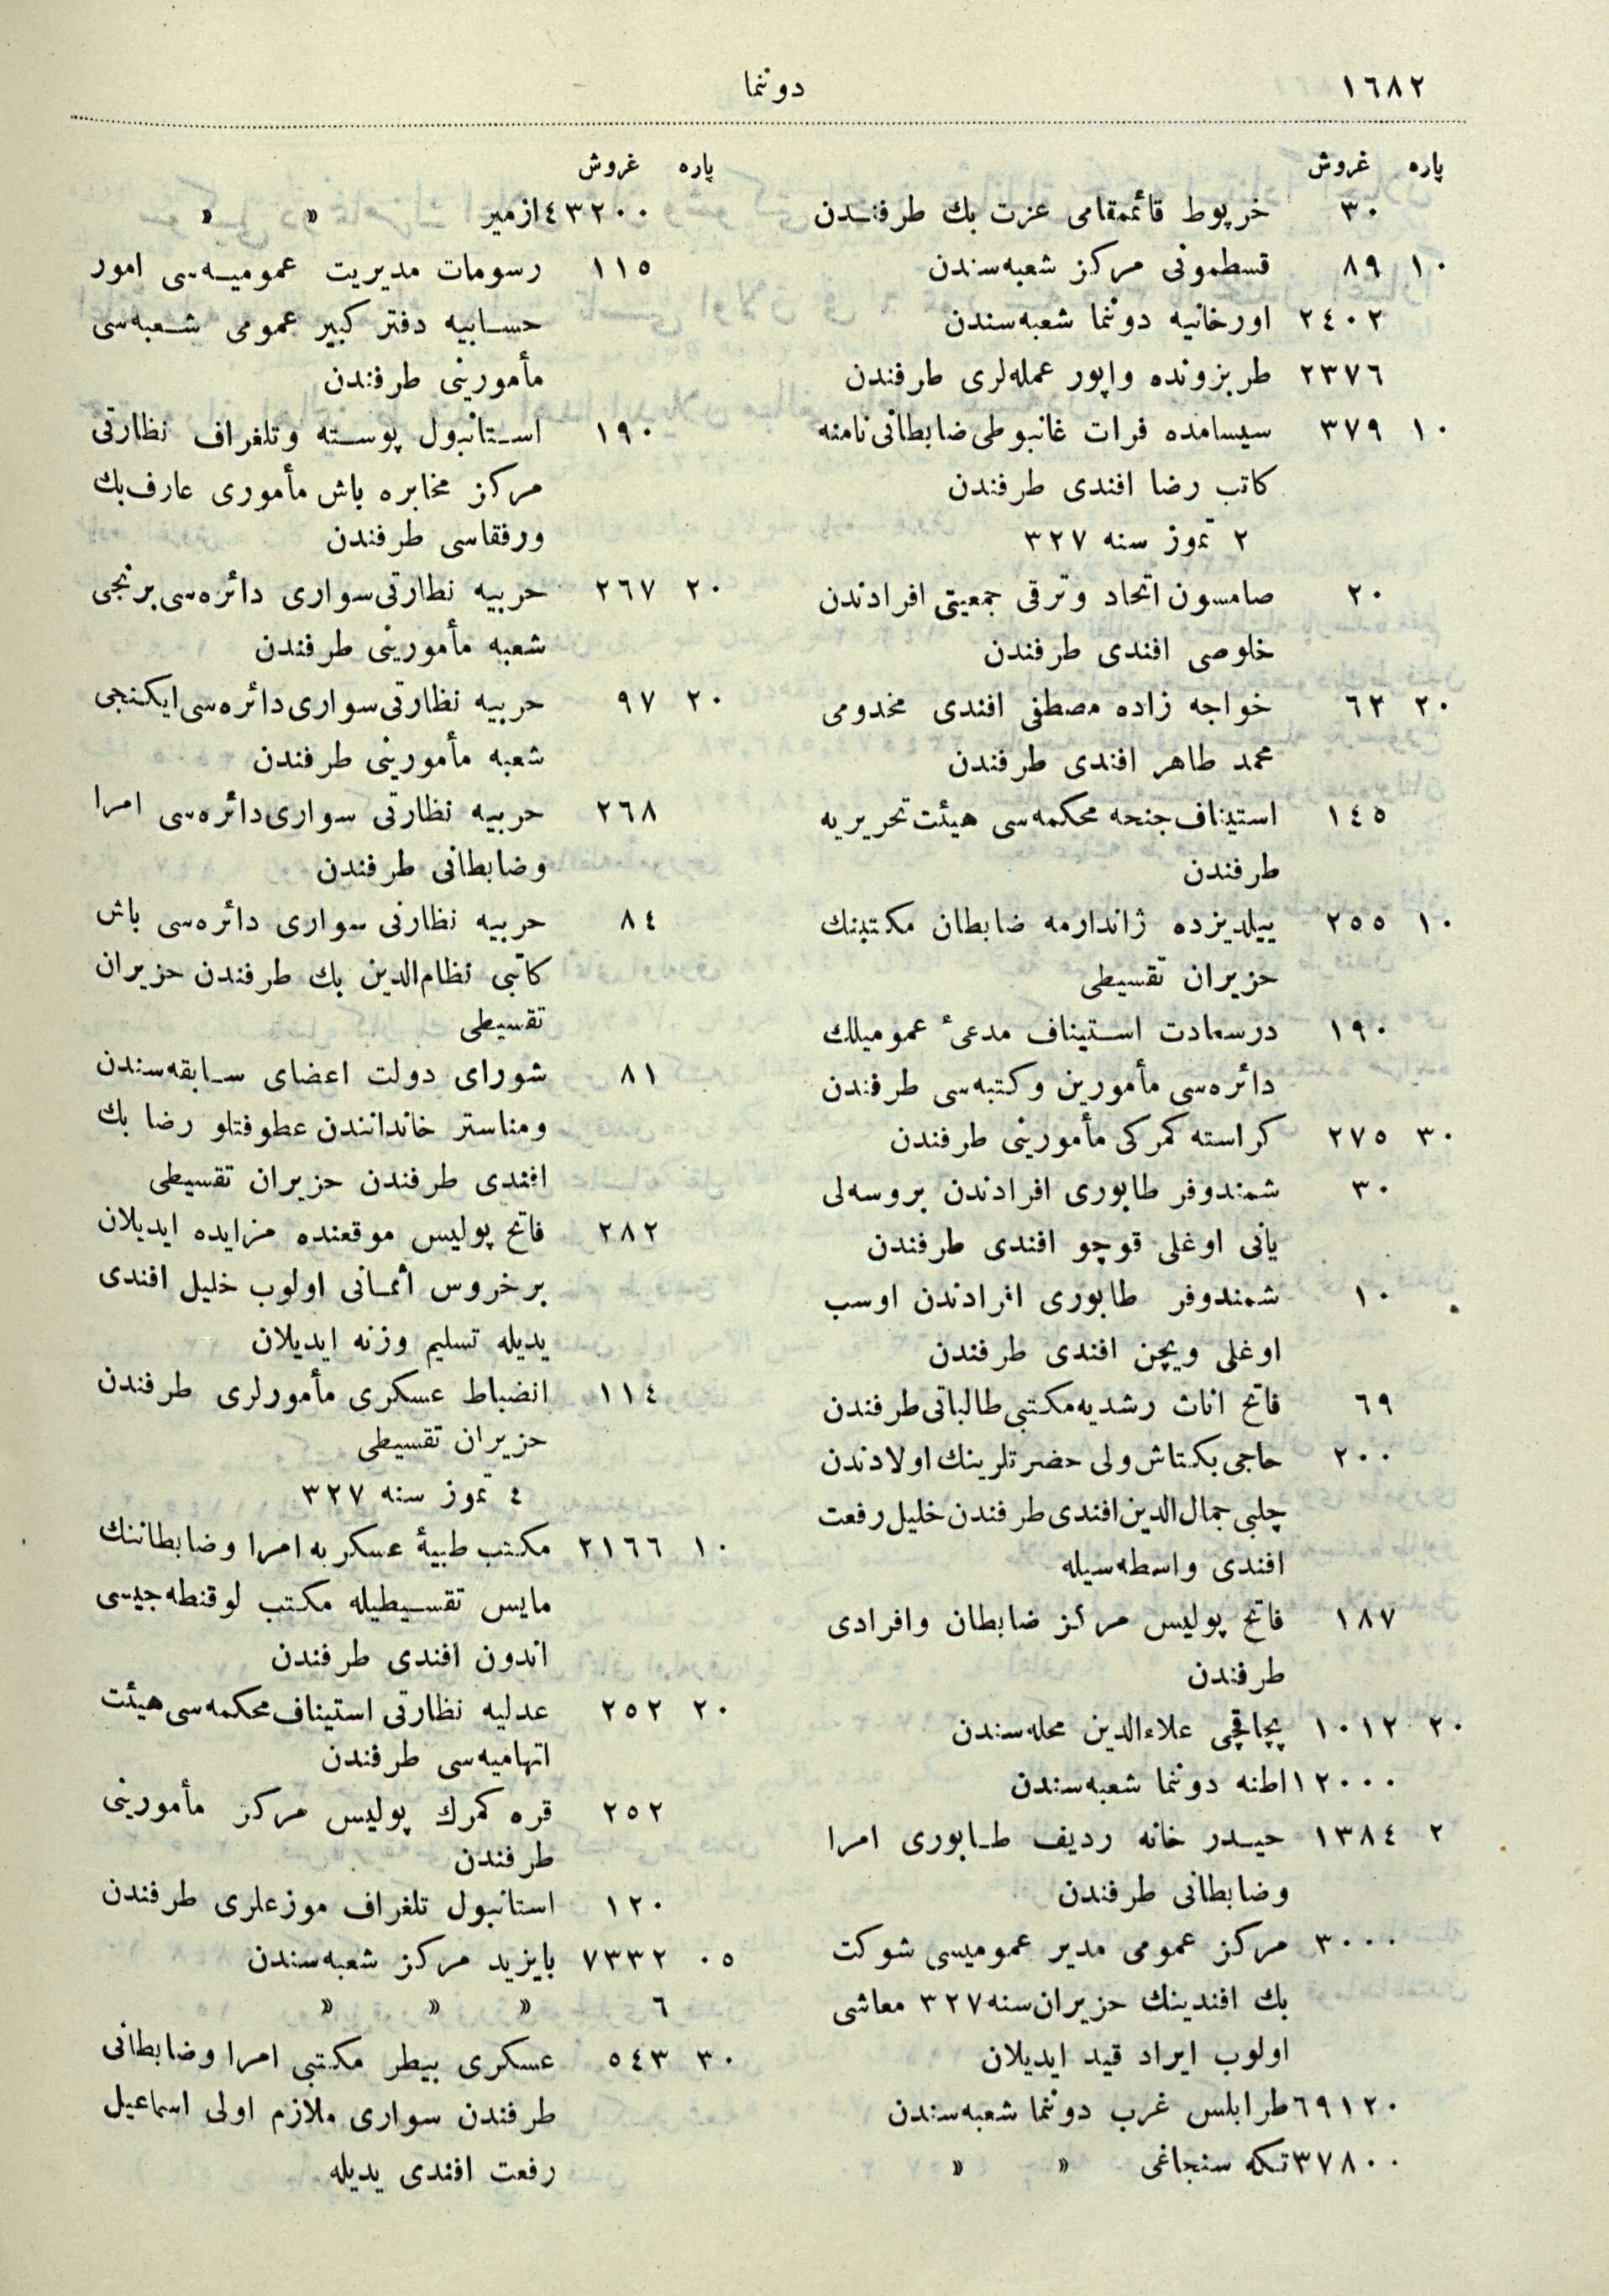 ١٦٨٢
دوننما
پاره غروش
٣٠ خرپوط قائممقامى عزت بك طرفندن
١٠ ٨٩ قسطمونى مركز شعبه‌سندن
٢٤٠٢ اورخانيه دوننما شعبه‌سندن
٢٣٧٦ طربزونده واپور عمله‌لرى طرفندن
١٠ ٣٧٩ سيسامده فرات غانبوطى ضابطانى نامنه
كاتب رضا افندى طرفندن
٢ تموز سنه ٣٢٧
٢٠ صامسون اتحاد وترقى جمعيتى افرادندن
خلوصى افندى طرفندن
٢٠ ٦٢ خواجه زاده مصطفى افندى مخدومى
محمد طاهر افندى طرفندن
١٤٥ استيناف جنحه محكمه‌سى هيئت تحريريه
طرفندن
١٠ ٢٥٥ ييلديزده ژاندارمه ضابطان مكتبنك
حزيران تقسيطى
١٩٠ درسعادت استيناف مدعىٔ عموميلك
دائره‌سى مأمورين وكتبه‌سى طرفندن
٣٠ ٢٧٥ كراسته كمركى مأمورينى طرفندن
٣٠ شمندوفر طابورى افرادندن بروسه‌لى
يانى اوغلى قوچو افندى طرفندن
١٠ شمندوفر طابورى افرادندن اوسب
اوغلى ويچن افندى طرفندن
٦٩ فاتح اناث رشديه مكتبى طالباتى طرفندن
٢٠٠ حاجى بكتاش ولى حضرتلرينك اولادندن
چلبى جمال‌الدين افندى طرفندن خليل رفعت
افندى واسطه‌سيله
١٨٧ فاتح پوليس مركز ضابطان وافرادى
طرفندن
٢٠ ١٠١٢ پچاقچى علاءالدين محله‌سندن
١٢٠٠٠ اطنه دوننما شعبه‌سندن
٢ ١٣٨٤ حيدر خانه رديف طابورى امرا
وضابطانى طرفندن
٣٠٠٠ مركز عمومى مدير عموميسى شوكت
بك افندينك حزيران سنه ٣٢٧ معاشى
اولوب ايراد قيد ايديلان
٦٩١٢٠ طرابلس غرب دوننما شعبه‌سندن
٣٧٨٠٠ تكه سنجاغى » »
پاره غروش
٤٣٢٠٠ ازمير » »
١١٥ رسومات مديريت عموميه‌سى امور
حسابيه دفتر كبير عمومى شعبه‌سى
مأمورينى طرفندن
١٩٠ استانبول پوسته وتلغراف نظارتى
مركز مخابره باش مأمورى عارف بك
ورفقاسى طرفندن
٢٠ ٢٦٧ حربيه نظارتى سوارى دائره‌سى برنجى
شعبه مأمورينى طرفندن
٢٠ ٩٧ حربيه نظارتى سوارى دائره‌سى ايكنجى
شعبه مأمورينى طرفندن
٢٦٨ حربيه نظارتى سوارى دائره‌سى امرا
وضابطانى طرفندن
٨٤ حربيه نظارتى سوارى دائره‌سى باش
كاتبى نظام‌الدين بك طرفندن حزيران
تقسيطى
٨١ شوراى دولت اعضاى سابقه‌سندن
ومناستر خاندانندن عطوفتلو رضا بك
افندى طرفندن حزيران تقسيطى
٢٨٢ فاتح پوليس موقعنده مزايده ايديلان
برخروس اثمانى اولوب خليل افندى
يديله تسليم وزنه ايديلان
١١٤ انضباط عسكرى مأمورلرى طرفندن
حزيران تقسيطى
٤ تموز سنه ٣٢٧
١٠ ٢١٦٦ مكتب طبيهٔ عسكريه امرا وضابطاننك
مايس تقسيطيله مكتب لوقنطه‌جيسى
اندون افندى طرفندن
٢٠ ٢٥٢ عدليه نظارتى استيناف محكمه‌سى هيئت
اتهاميه‌سى طرفندن
٢٥٢ قره كمرك پوليس مركز مأمورينى
طرفندن
١٢٠ استانبول تلغراف موزعلرى طرفندن
٠٥ ٧٣٣٢ بايزيد مركز شعبه‌سندن
٦ » » »
٣٠ ٥٤٣ عسكرى بيطر مكتبى امرا وضابطانى
طرفندن سوارى ملازم اولى اسماعيل
رفعت افندى يديله